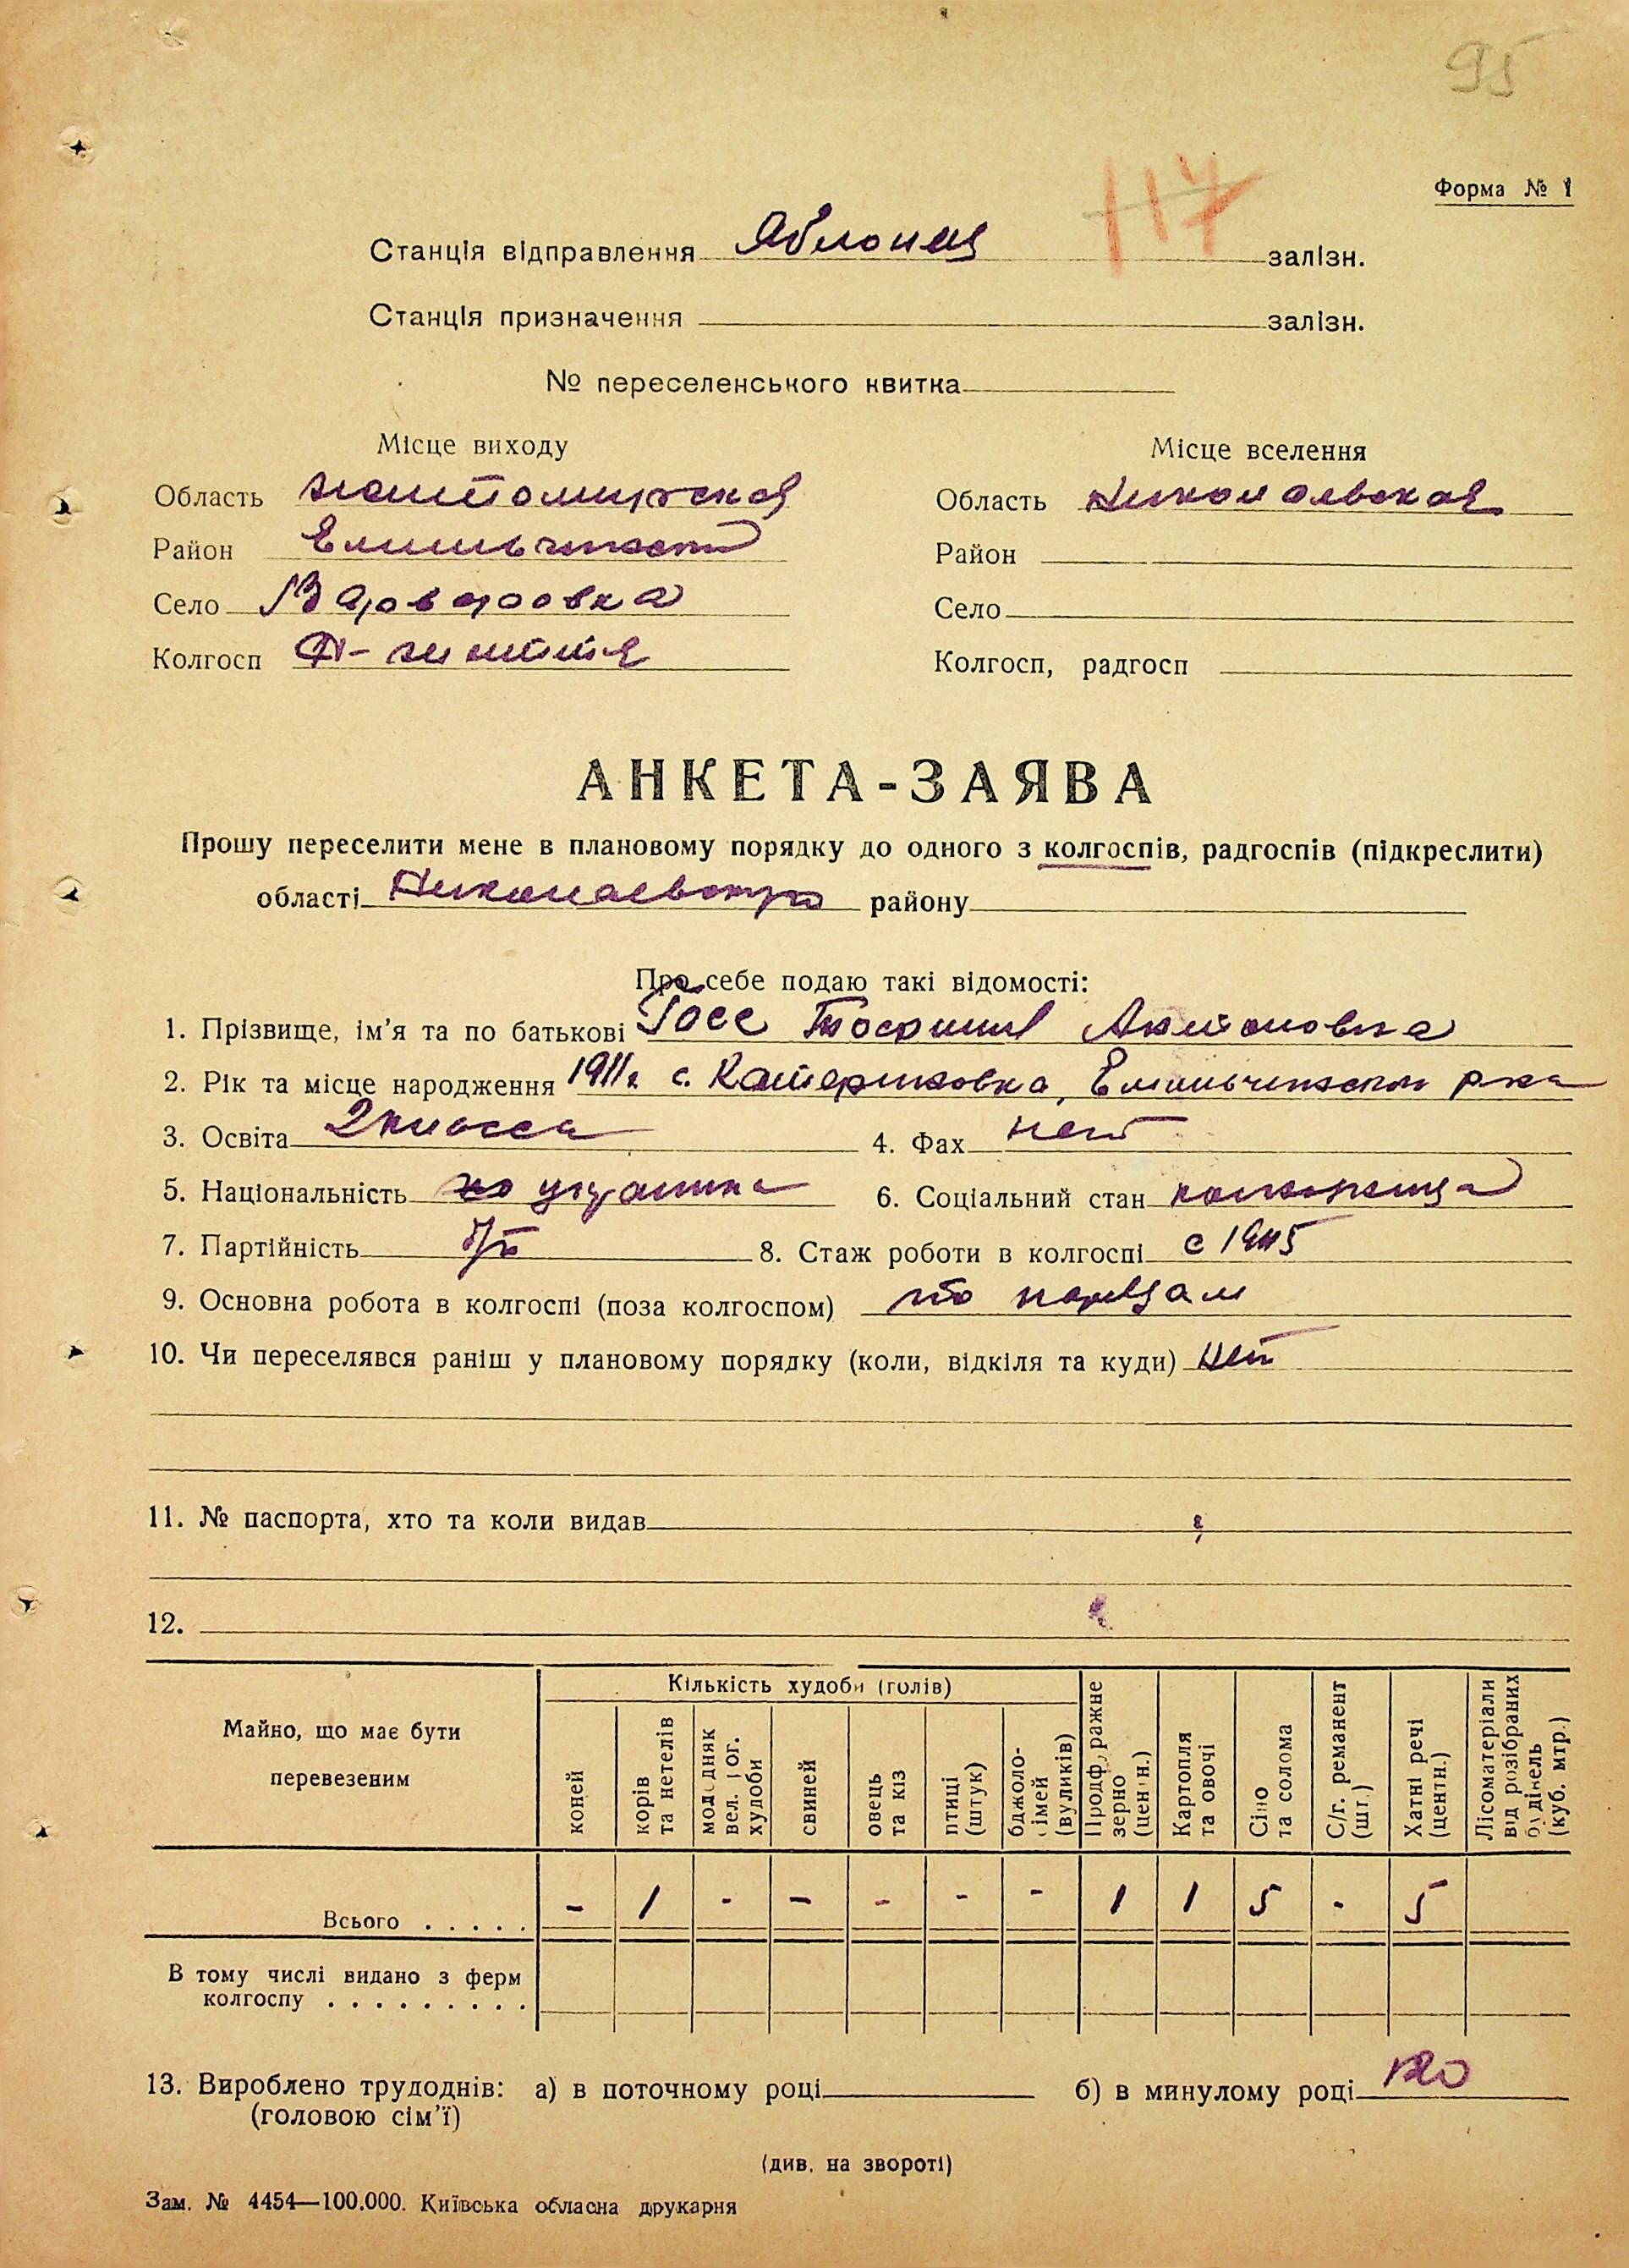 95
117
Форма № 1
Станція відправлення Яблонец залізн.
Станція призначення залізн.
№ переселенського квитка
Місце виходу Місце вселення
Область Житомирская Область Николаевская
Район Емильчинский Район
Село Варваровка Село
Колгосп життя Колгосп, радгосп
АНКЕТА-ЗАЯВА
Прошу переселити мене в плановому порядку до одного з колгоспів, радгоспів (підкреслити)
області Николаевскую району
Про себе подаю такі відомості:
1. Прізвище, ім’я та по батькові Госс Антоновна
2. Рік та місце народження 1911г с. Катериновка, Емильчинского р-на
3. Освіта 2 класса 4. Фах нет
5. Національність украинка 6. Соціальний стан колхозница
7. Партійність б/п 8. Стаж роботи в колгоспі с 1945
9. Основна робота в колгоспі (поза колгоспом) по нарядам
10. Чи переселявся раніш у плановому порядку (коли, відкіля та куди) Нет
11. № паспорта, хто та коли видав
12.
Майно, що має бути перевезеним
Кількість худоби (голів)
коней
корів та нетелів
молодняк вел. рог. худоби
свиней
овець та кіз
птиці (штук)
бджолосімей (вуликів)
Продфуражне зерно (центн.)
Картопля та овочі
Сіно та солома
С/г. реманент (шт.)
Хатні речі (центн.)
Лісоматеріали від розібраних будівель (куб. мтр.)
Всього . . . . . - 1 - - - - - 1 1 5 - 5
В тому числі видано з ферм
колгоспу . . . . . . . . .
13. Вироблено трудоднів: а) в поточному році б) в минулому році 120
(головою сім’ї)
(див. на звороті)
Зам. № 4454—100.000. Київська обласна друкарня